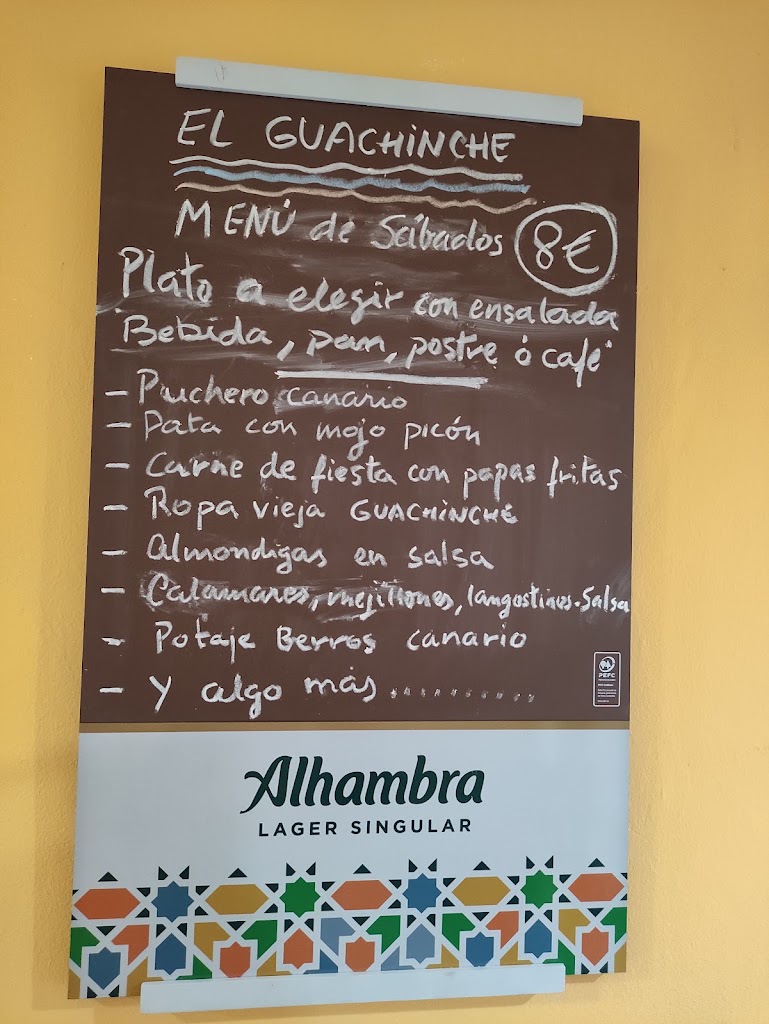 EL GUACHINCHE
MENÚ de Sábados 8€
Plato a elegir con ensalada
Bebida, pan, postre ó café
- Puchero canario
- Pata con mojo picón
- Carne de fiesta con papas fritas
- Ropa vieja GUACHINCHE
- Almondigas en salsa
- Calamares, mejillones, langostinos-Salsa
- Potaje Berros canario
- Y algo más..............
PEFC
Alhambra
LAGER SINGULAR